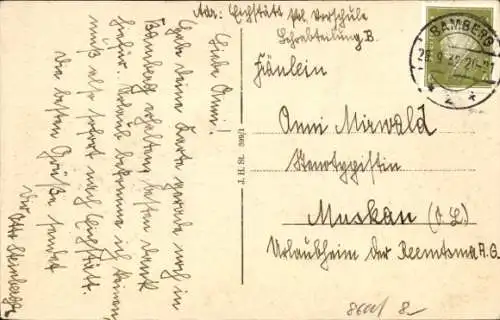 Adr.: Eichstätt, Pol. Vorschule
Lehrabteilung B.
Liebe Anni!
Habe deine Karte gerade noch in
Bamberg erhalten besten Dank
hiefür. Urlaub bekomme ich keinen
muß also sofort nach Eichstätt.
Die besten Grüße sendet
Dir Otto
J. H. St. 209/1
BAMBERG
2
Fräulein
Anni Mirwald
Stenotypistin
Muskau (O. L.)
Urlaubheim der Reemtsma A.G.
8-